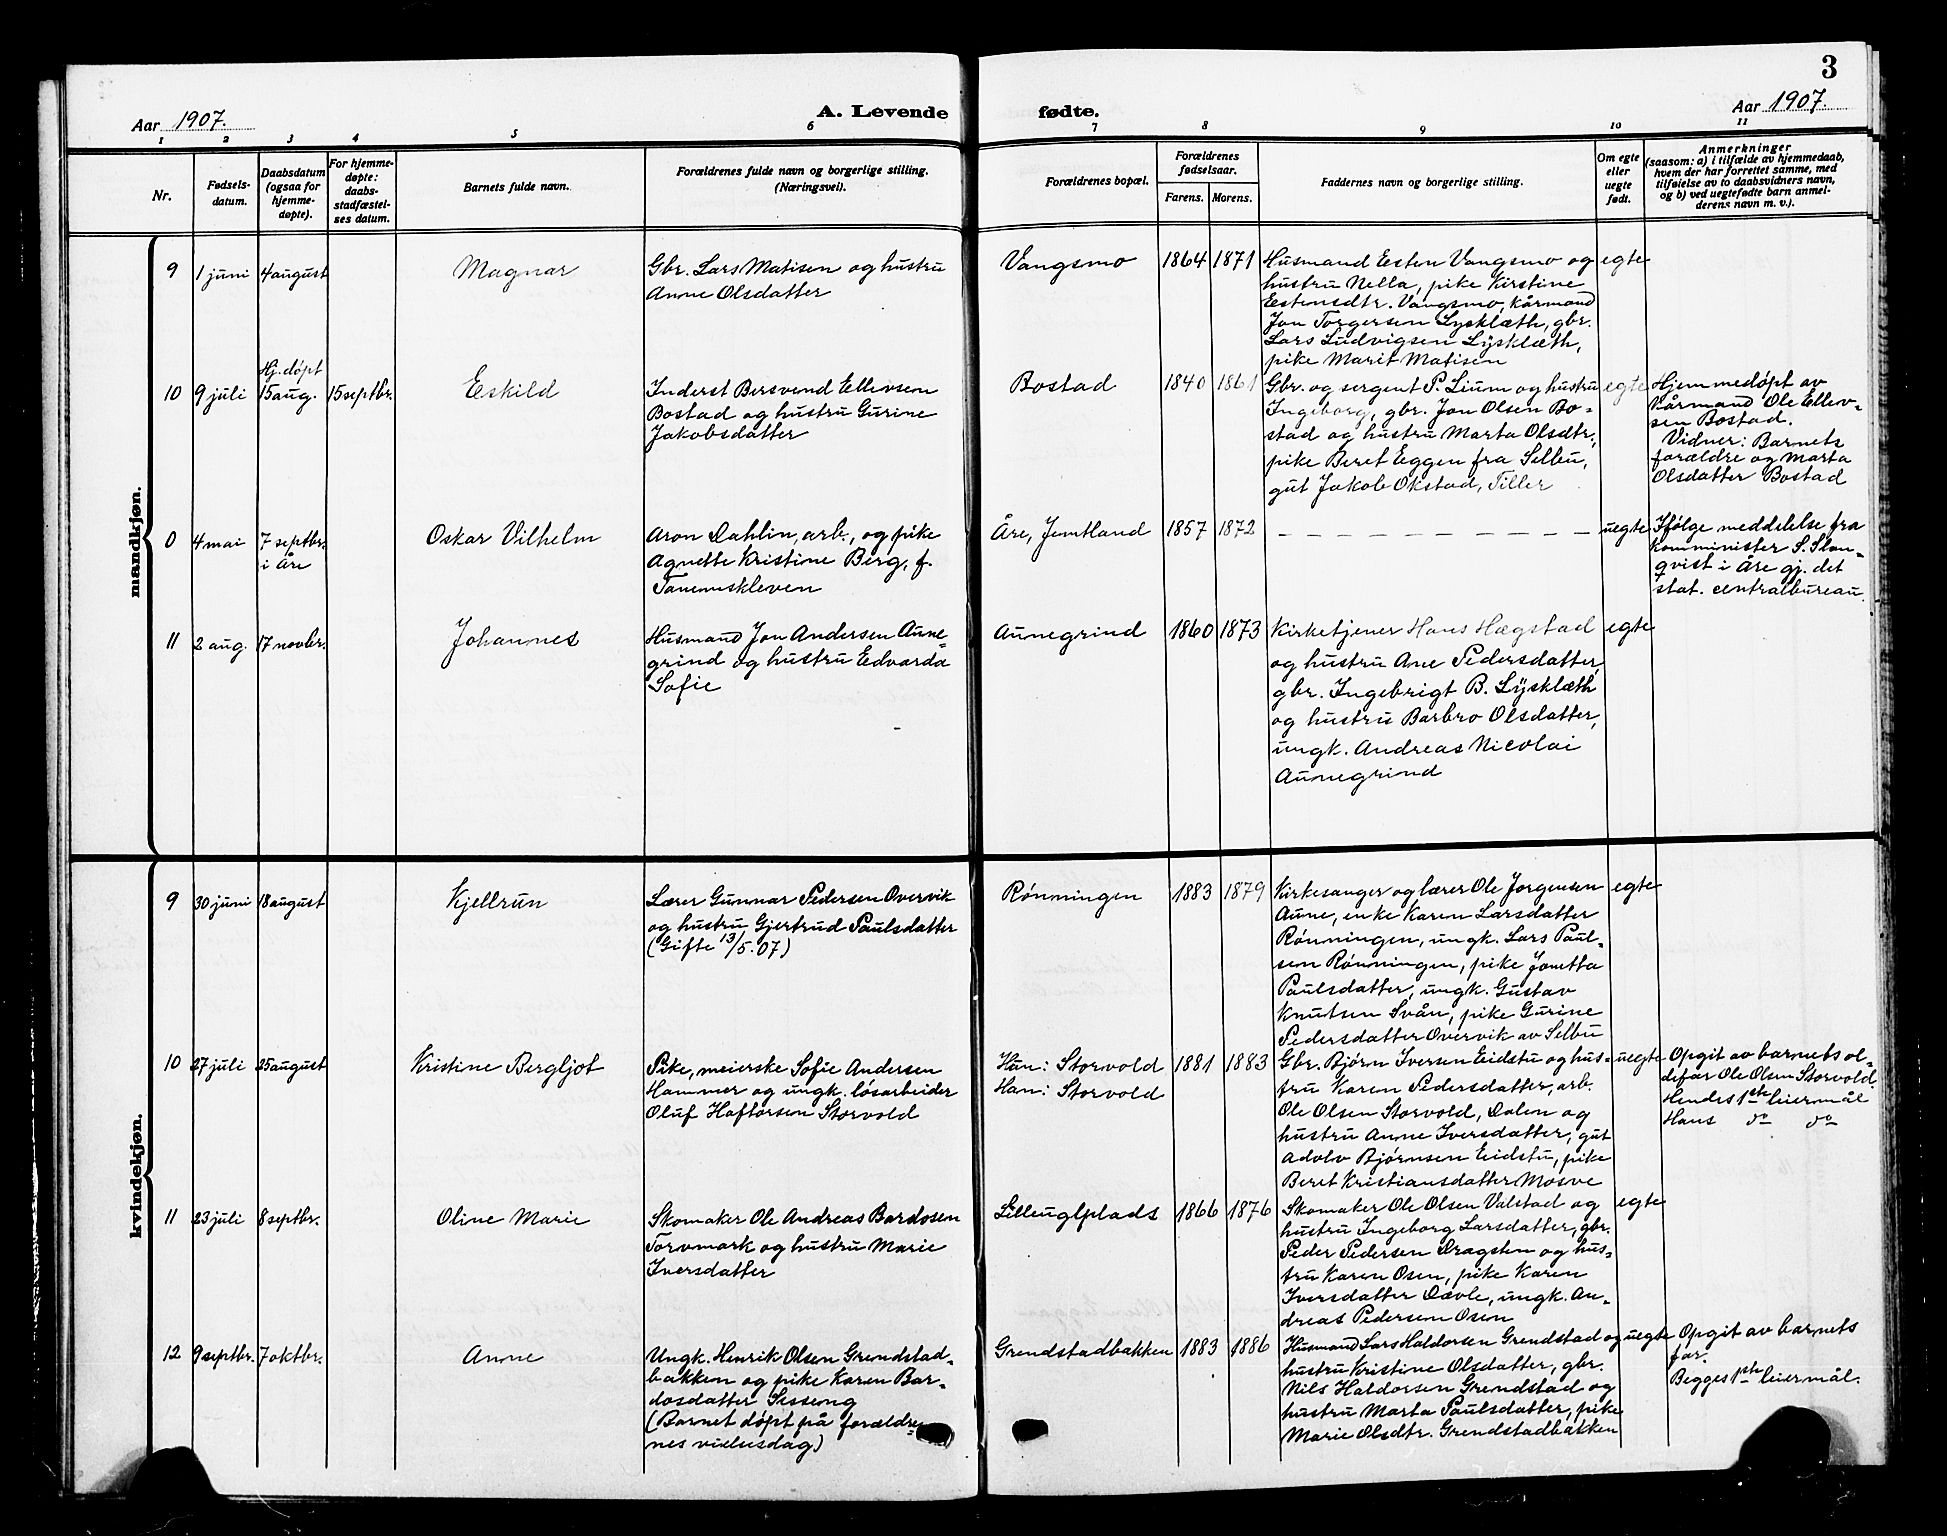 3
Aar 1907.
A. Levende fødte.
Aar 1907.
1 2 3 4 5 6 7 8 9 10 11
Nr.
Fødsels-
datum.
Daabsdatum
(ogsaa for
hjemme-
døpte).
For hjemme-
døpte:
daabs-
stadfæstel-
ses datum.
Barnets fulde navn.
Forældrenes fulde navn og borgerlige stilling.
(Næringsvei).
Forældrenes bopæl.
Forældrenes
fødselsaar.
Farens. Morens.
Faddernes navn og borgerlige stilling.
Om egte
eller
uegte
født.
Anmerkninger
(saasom: a) i tilfælde av hjemmedaab,
hvem der har forrettet samme, med
tilføielse av to daabsvidners navn,
og b) ved uegtefødte barn anmel-
derens navn m. v.).
mandkjøn.
9 1 juni 4 august
Magnar
Gbr. Lars Matisen og hustru
Anne Olsdatter
Vangsmo
1864 1871
Husmand Esten Vangsmo og
hustru Nella, pike Kirstine
Estensdtr. Vangsmo, kårmand
Jon Torgersen Lysklæth, gbr.
Lars Ludvigsen Lysklæth,
pike Marit Matisen
egte
10 9 juli
Hj. døpt
15 aug.
15 septbr.
Eskild
Inderst Bersvend Ellevsen
Bostad og hustru Gurine
Jakobsdatter
Bostad
1840 1861
Gbr. og sergent P. Lium og hustru
Ingeborg, gbr. Jon Olsen Bo-
stad og hustru Marta Olsdtr.,
pike Beret Eggen fra Selbu,
gut Jakob Okstad, Tiller
egte
Hjemmedøpt av
kårmand Ole Ellev-
sen Bostad.
Vidner: Barnets
forældre og Marta
Olsdatter Bostad
0 4 mai
7 septbr.
i Åre
Oskar Vilhelm
Aron Dahlin, arb., og pike
Agnette Kristine Berg, f.
Tanemskleven
Åre, Jemtland
1857 1872
– – – – – – – – – – –
uegte
Ifølge meddelelse fra
Komminister S. Slan-
qvist i Åre gj. det
stat. centralbureau.
11 2 aug. 17 novbr.
Johannes
Husmand Jon Andersen Aune-
grind og hustru Edvarda
Sofie
Aunegrind
1860 1873
Kirketjener Hans Hægstad
og hustru Ane Pedersdatter,
gbr. Ingebrigt B. Lysklæth
og hustru Barbro Olsdatter,
ungk. Andreas Nicolai
Aunegrind
egte
kvindekjøn.
9 30 juni 18 august
Kjellrun
Lærer Gunnar Pedersen Overvik
og hustru Gjertrud Paulsdatter
(Gifte 13/5.07)
Rønningen
1883 1879
Kirkesanger og lærer Ole Jørgensen
Aune, enke Karen Larsdatter
Rønningen, ungk. Lars Paul-
sen Rønningen, pike Jonetta
Paulsdatter, ungk. Gustav
Knutsen Svån, pike Gurine
Pedersdatter Overvik av Selbu
egte
10 27 juli 25 august
Kristine Bergljot
Pike, meierske Sofie Andersen
Hammer og ungk. løsarbeider
Oluf Haftorsen Storvold
Hun: Storvold
Han: Storvold
1881 1883
Gbr. Bjørn Iversen Eidstu og hus-
tru Karen Pedersdatter, arb.
Ole Olsen Storvold, Dalen og
hustru Anne Iversdatter, gut
Adolv Bjørnsen Eidstu, pike
Beret Kristiansdatter Mosve
uegte
Opgit av barnets ol-
defar Ole Olsen Storvold
Hendes 1ste leiermål
Hans do do
11 23 juli 8 septbr.
Oline Marie
Skomaker Ole Andreas Bardosen
Torvmark og hustru Marie
Iversdatter
Lilleuglplads
1866 1876
Skomaker Ole Olsen Valstad og
hustru Ingeborg Larsdatter, gbr.
Peder Pedersen Dragsten og hus-
tru Karen Osen, pike Karen
Iversdatter Døvle, ungk. An-
dreas Pedersen Osen
egte
12 9 septbr. 7 oktbr.
Anne
Ungk. Henrik Olsen Grendstad-
bakken og pike Karen Bar-
dosdatter Sesseng
(Barnet døpt på forældre-
nes vielsesdag)
Grendstadbakken
1883 1886
Husmand Lars Haldorsen Grendstad og
hustru Kristine Olsdatter, gbr.
Nils Haldorsen Grendstad og
hustru Marta Paulsdatter, pike
Marie Olsdtr. Grendstadbakken
uegte
Opgit av barnets
far.
Begges 1ste leiermål.